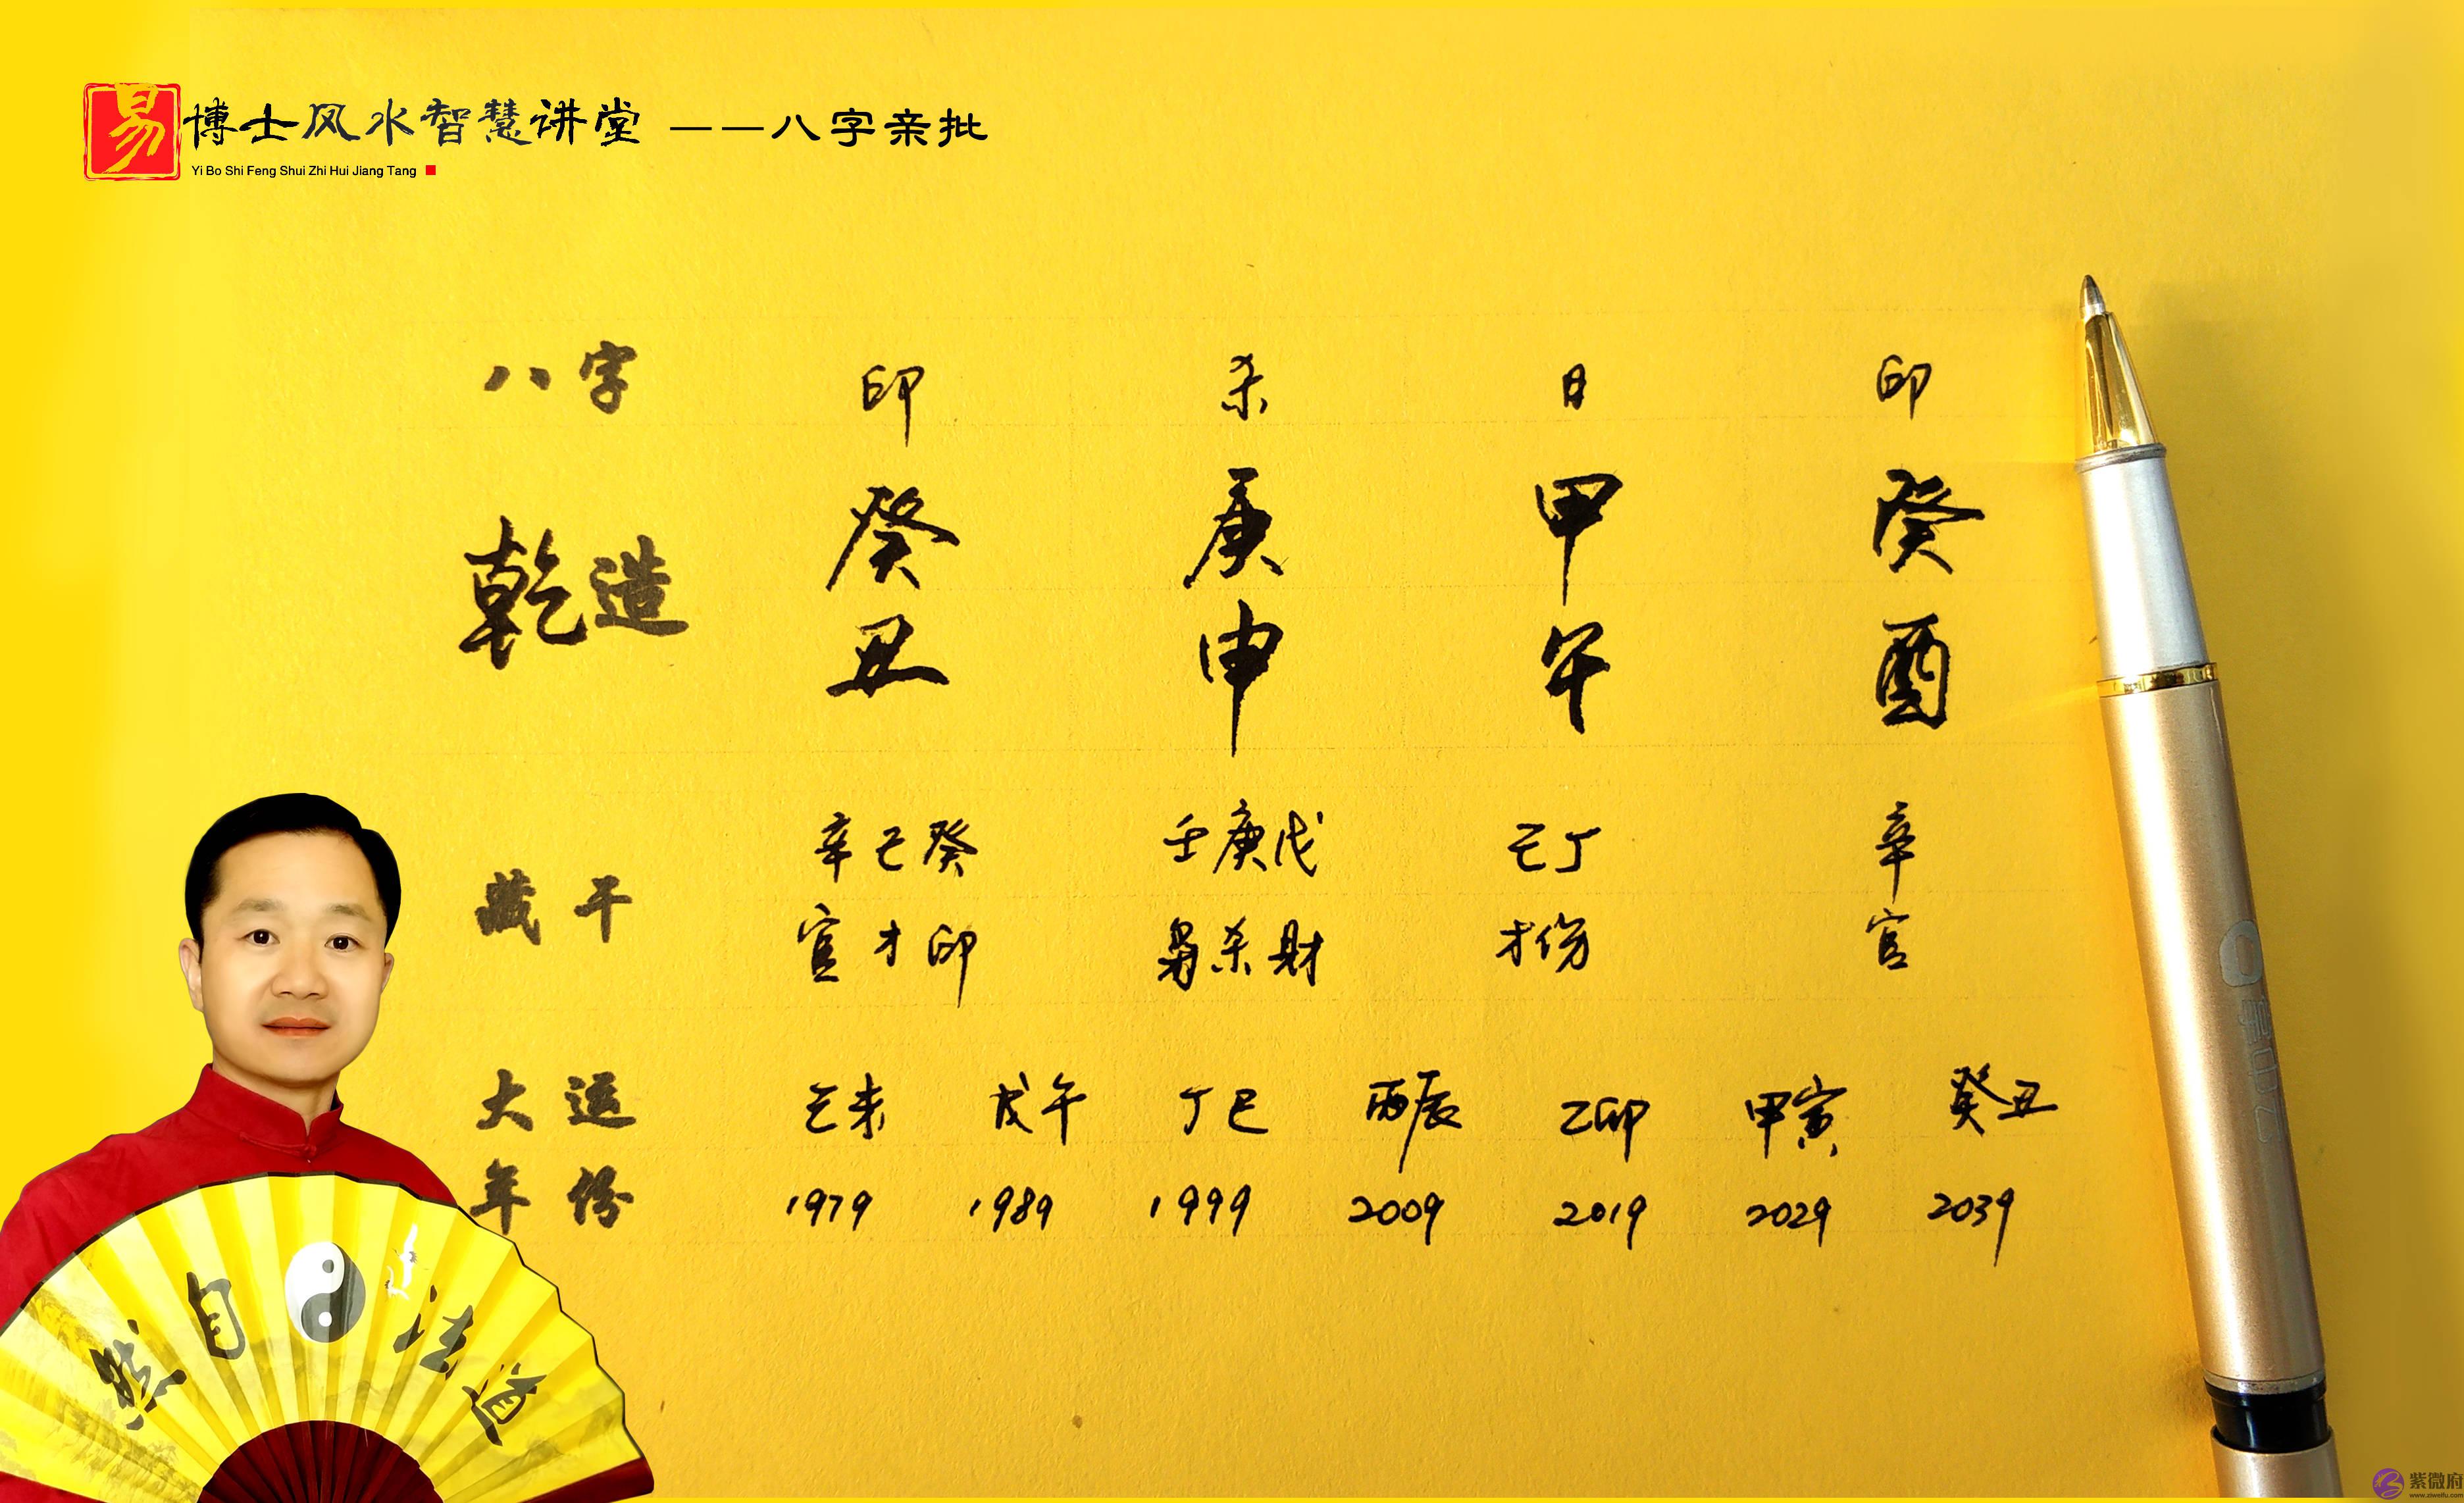 易博士风水智慧讲堂 ——八字亲批
Yi Bo Shi Feng Shui Zhi Hui Jiang Tang
八字 印 杀 日 印
乾造 癸丑 庚申 甲午 癸酉
藏干 辛己癸 壬庚戊 己丁 辛
官才印 枭杀财 才伤 官
大运 己未 戊午 丁巳 丙辰 乙卯 甲寅 癸丑
年份 1979 1989 1999 2009 2019 2029 2039
道法自然
紫微府
www.ziweifu.com